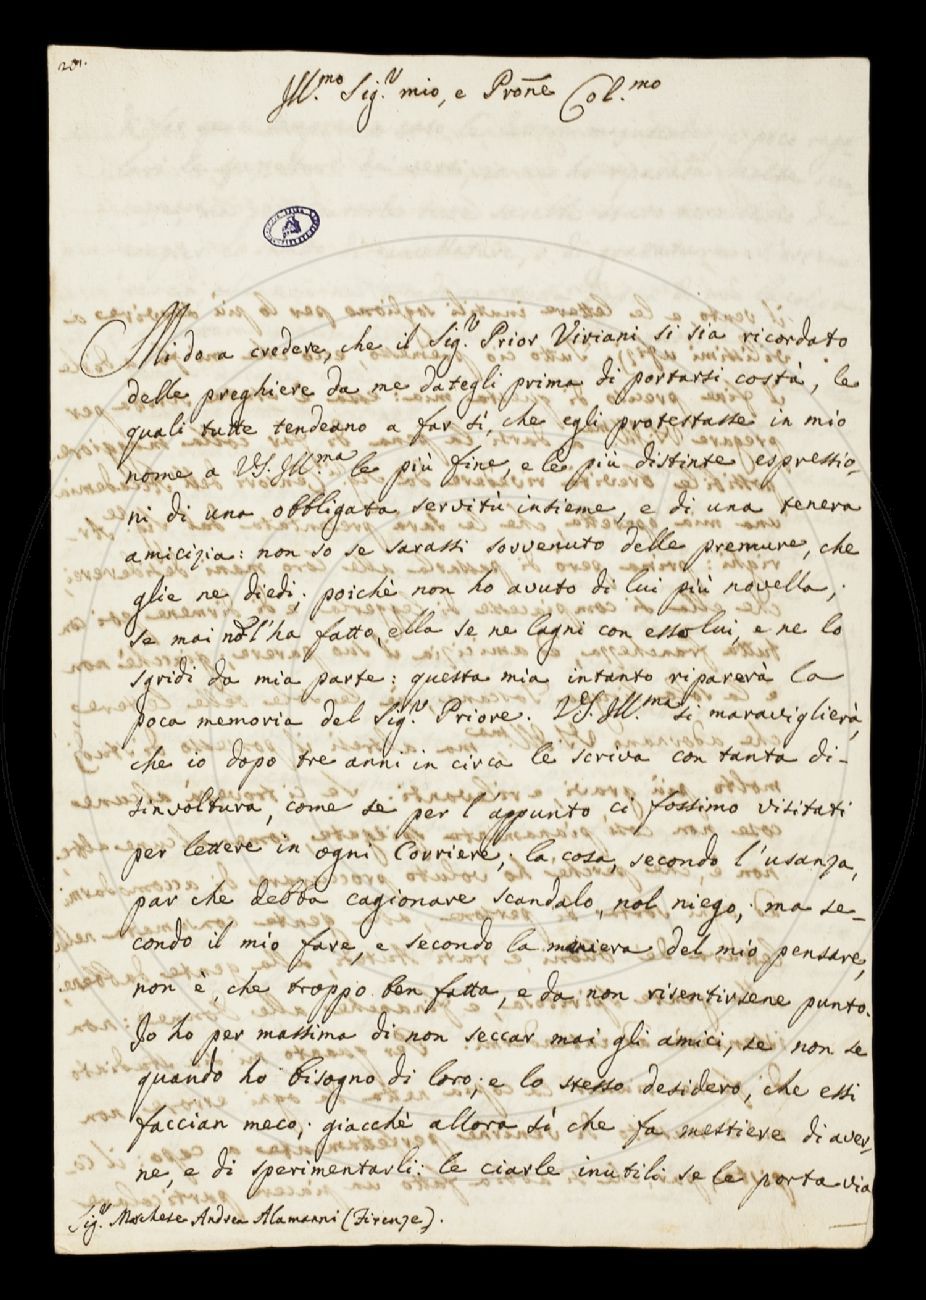 201.
Ill.mo Sig.r mio, e Prone Col.mo
Mi do a credere, che il Sig.r Prior Viviani si sia ricordato
delle preghiere da me dategli prima di portarsi costà, le
quali tutte tendeano a far sì, che egli protestasse in mio
nome a VS. Ill.ma le più fine, e le più distinte espressio-
ni di una obbligata servitù insieme, e di una tenera
amicizia: non so se sarassi sovvenuto delle premure, che
glie ne diedi, poichè non ho avuto di lui più novella;
se mai nol l'ha fatto, ella se ne lagni con esso lui, e ne lo
sgridi da mia parte: questa mia intanto riparerà la
poca memoria del Sig.r Priore. VS. Ill.ma si maraviglierà,
che io dopo tre anni in circa le scriva con tanta di-
sinvoltura, come se per l'appunto ci fossimo visitati
per lettere in ogni Corriere; la cosa, secondo l'usanza,
par che debba cagionare scandalo, nol niego; ma se-
condo il mio fare, e secondo la maniera del mio pensare,
non è, che troppo ben fatta, e da non risentirsene punto.
Io ho per massima di non seccar mai gli amici, se non se
quando ho bisogno di loro; e lo stesso desidero, che essi
faccian meco; giacchè allora sì che fa mestiere di aver-
ne, e di sperimentarli: le ciarle inutili se le porta via
Sig.r Marchese Andrea Alamanni (Firenze).